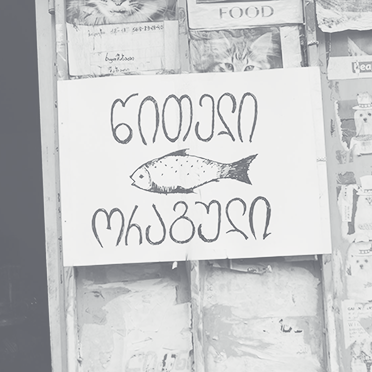 FOOD
წითელი
ორაგული